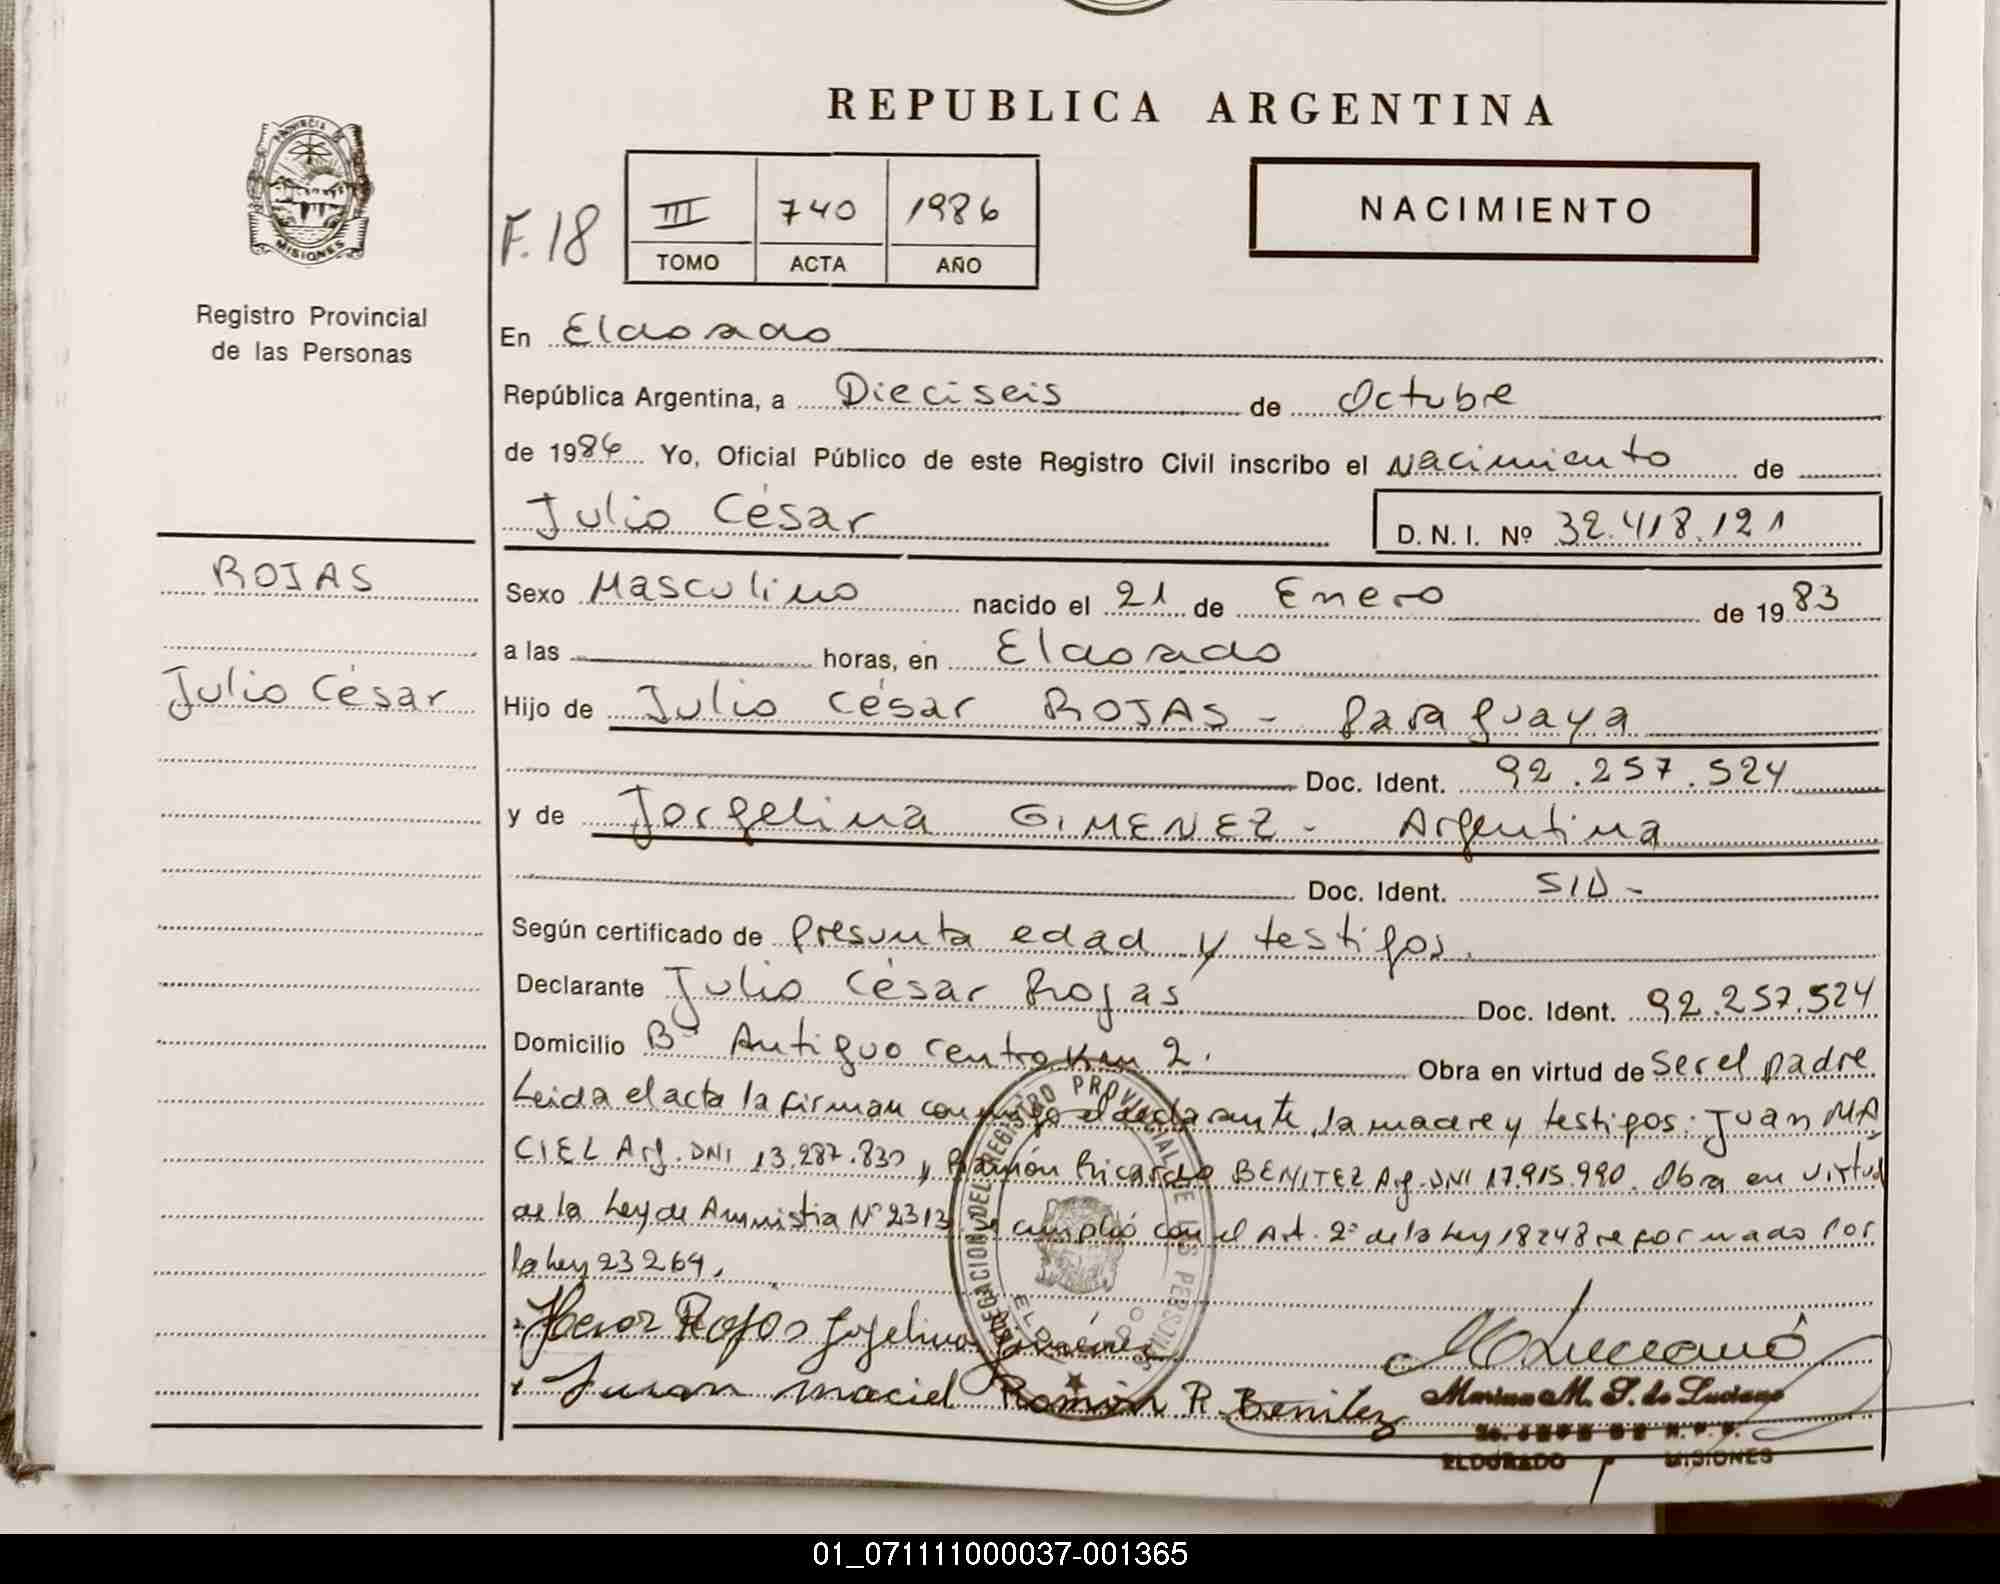 REPUBLICA ARGENTINA
PROVINCIA DE
MISIONES
Registro Provincial
de las Personas
F. 18
III 740 1986
TOMO ACTA AÑO
NACIMIENTO
En Eldorado
República Argentina, a Dieciseis de Octubre
de 1986 Yo, Oficial Público de este Registro Civil inscribo el Nacimiento de
Julio César D. N. I. Nº 32.418.121
ROJAS
Julio César
Sexo Masculino nacido el 21 de Enero de 1983
a las horas, en Eldorado
Hijo de Julio César ROJAS - Paraguaya
Doc. Ident. 92.257.524
y de Jorgelina GIMENEZ - Argentina
Doc. Ident. S/D -
Según certificado de presunta edad y testigos.
Declarante Julio César Rojas Doc. Ident. 92.257.524
Domicilio Bº Antiguo centro Km 2. Obra en virtud de ser el padre
Leida el acta la firman conmigo el declarante, la madre y testigos: Juan MA
CIEL Arg. DNI 13.287.830 y Ramón Ricardo BENITEZ Arg. DNI 17.915.990. Obra en virtud
de la Ley de Amnistia Nº 2313. se cumplió con el Art. 2º de la Ley 18248 reformado por
la Ley 23264.
Rojas Jorgelina Gimenez
Juan Maciel Ramón R. Benitez
DELEGACION DEL REGISTRO PROVINCIAL DE LAS PERSONAS
ELDORADO
M. S. de Luciano
JEFE DE R.P.P.
ELDORADO MISIONES
01_071111000037-001365